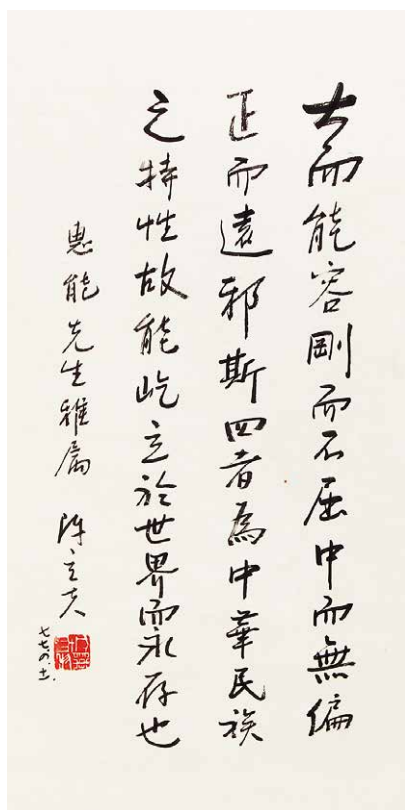 大而能容剛而不屈中而無偏
正而遠邪斯四者為中華民族
之特性故能屹立於世界而永存也
惠能先生雅屬 陳立夫
七七、六、十一.